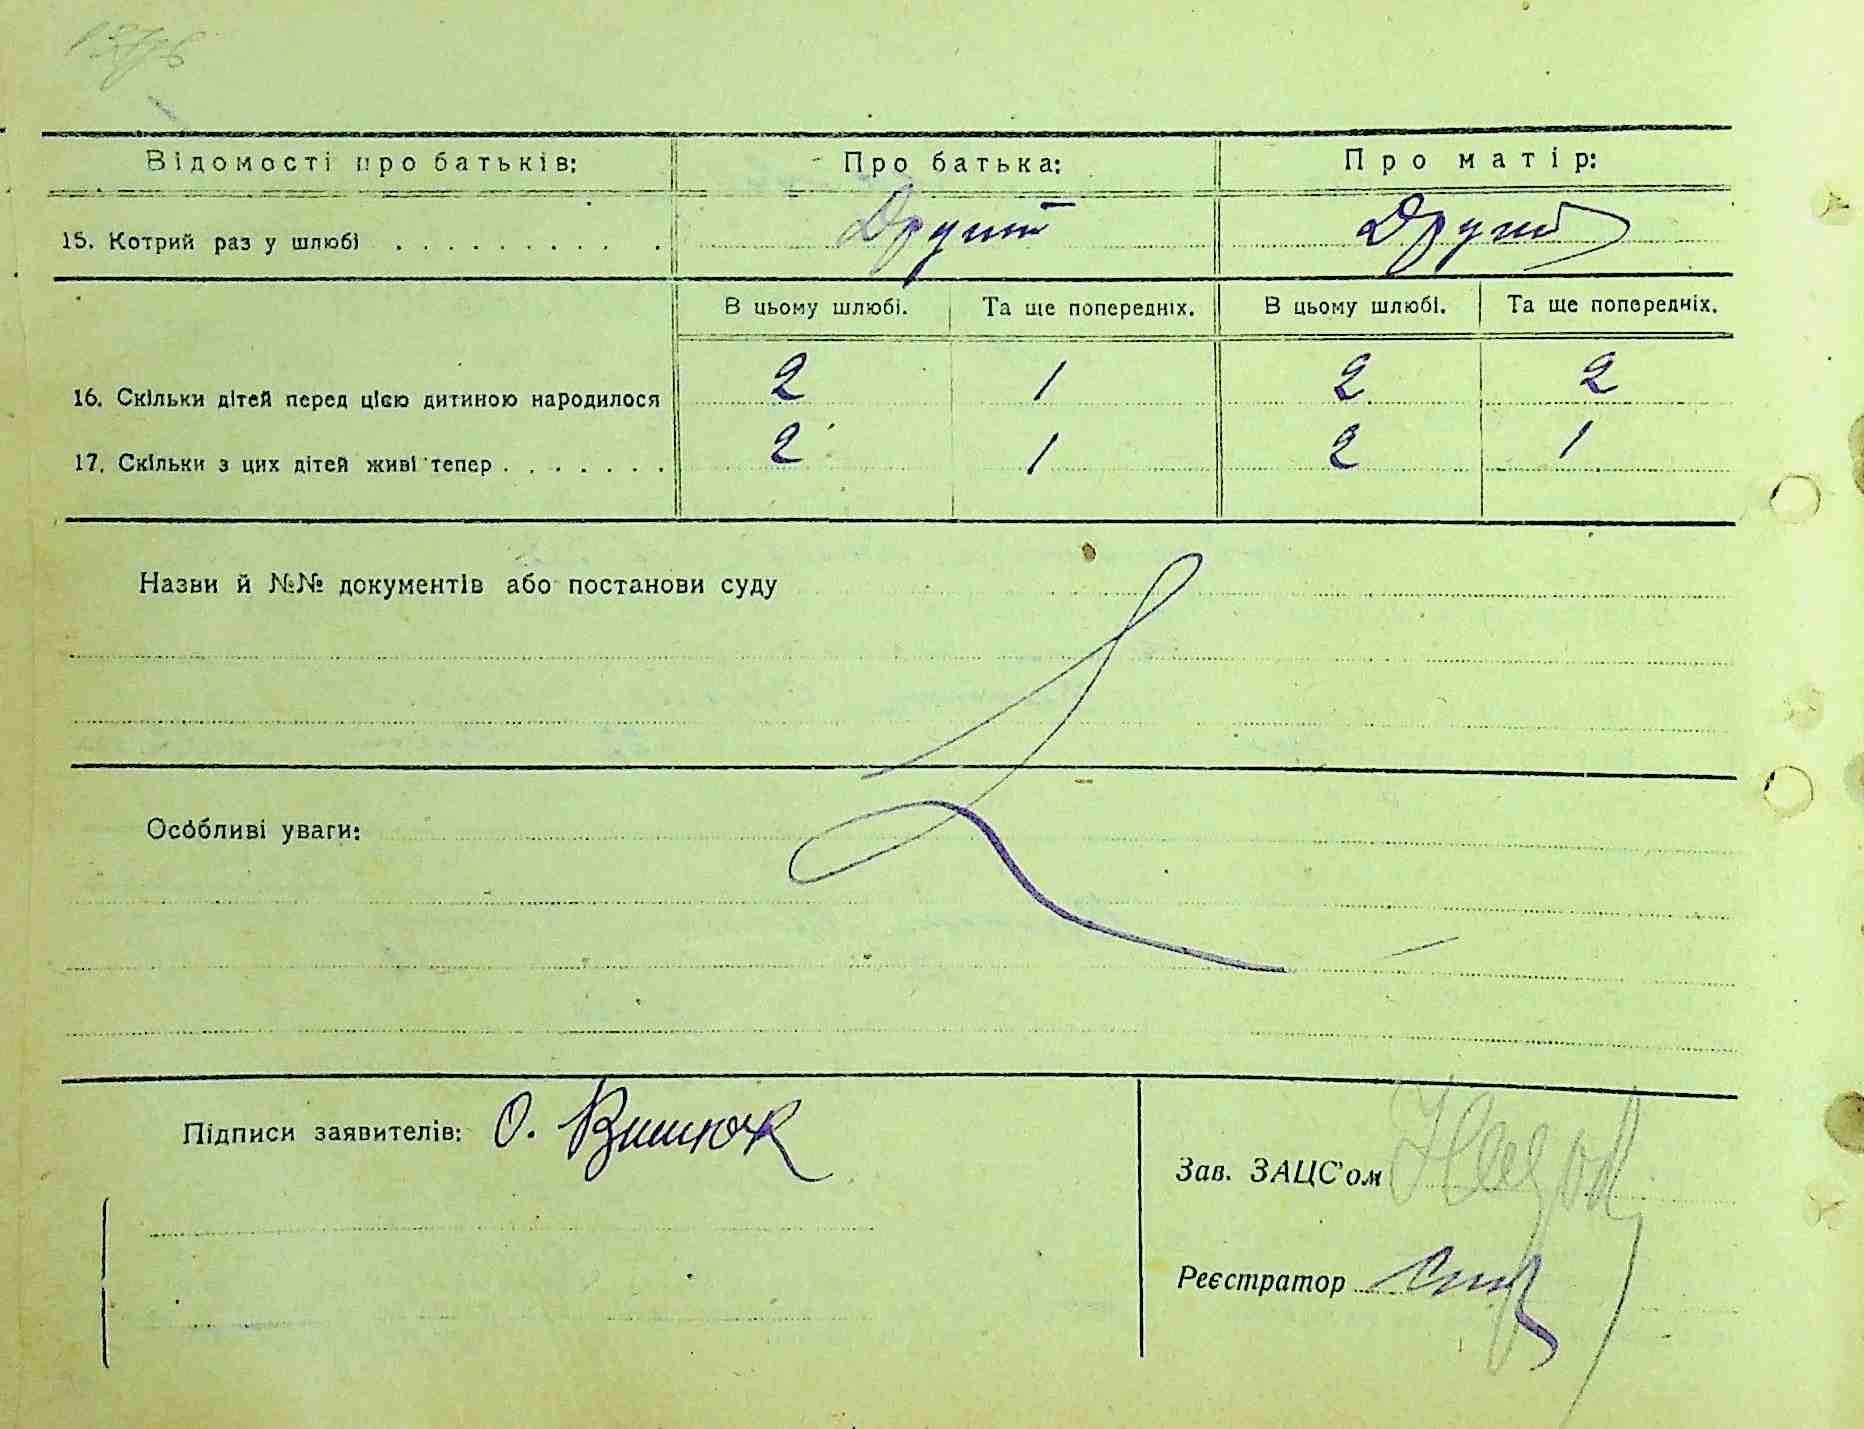 Відомості про батьків: Про батька: Про матір:
15. Котрий раз у шлюбі . . . . . . . . . . Другий Другий
В цьому шлюбі. Та ще попередніх. В цьому шлюбі. Та ще попередніх.
16. Скільки дітей перед цією дитиною народилося 2 1 2 2
17. Скільки з цих дітей живі тепер . . . . . . . 2 1 2 1
Назви й №№ документів або постанови суду
Особливі уваги:
Підписи заявителів: О.
Зав. ЗАЦС'ом
Реєстратор